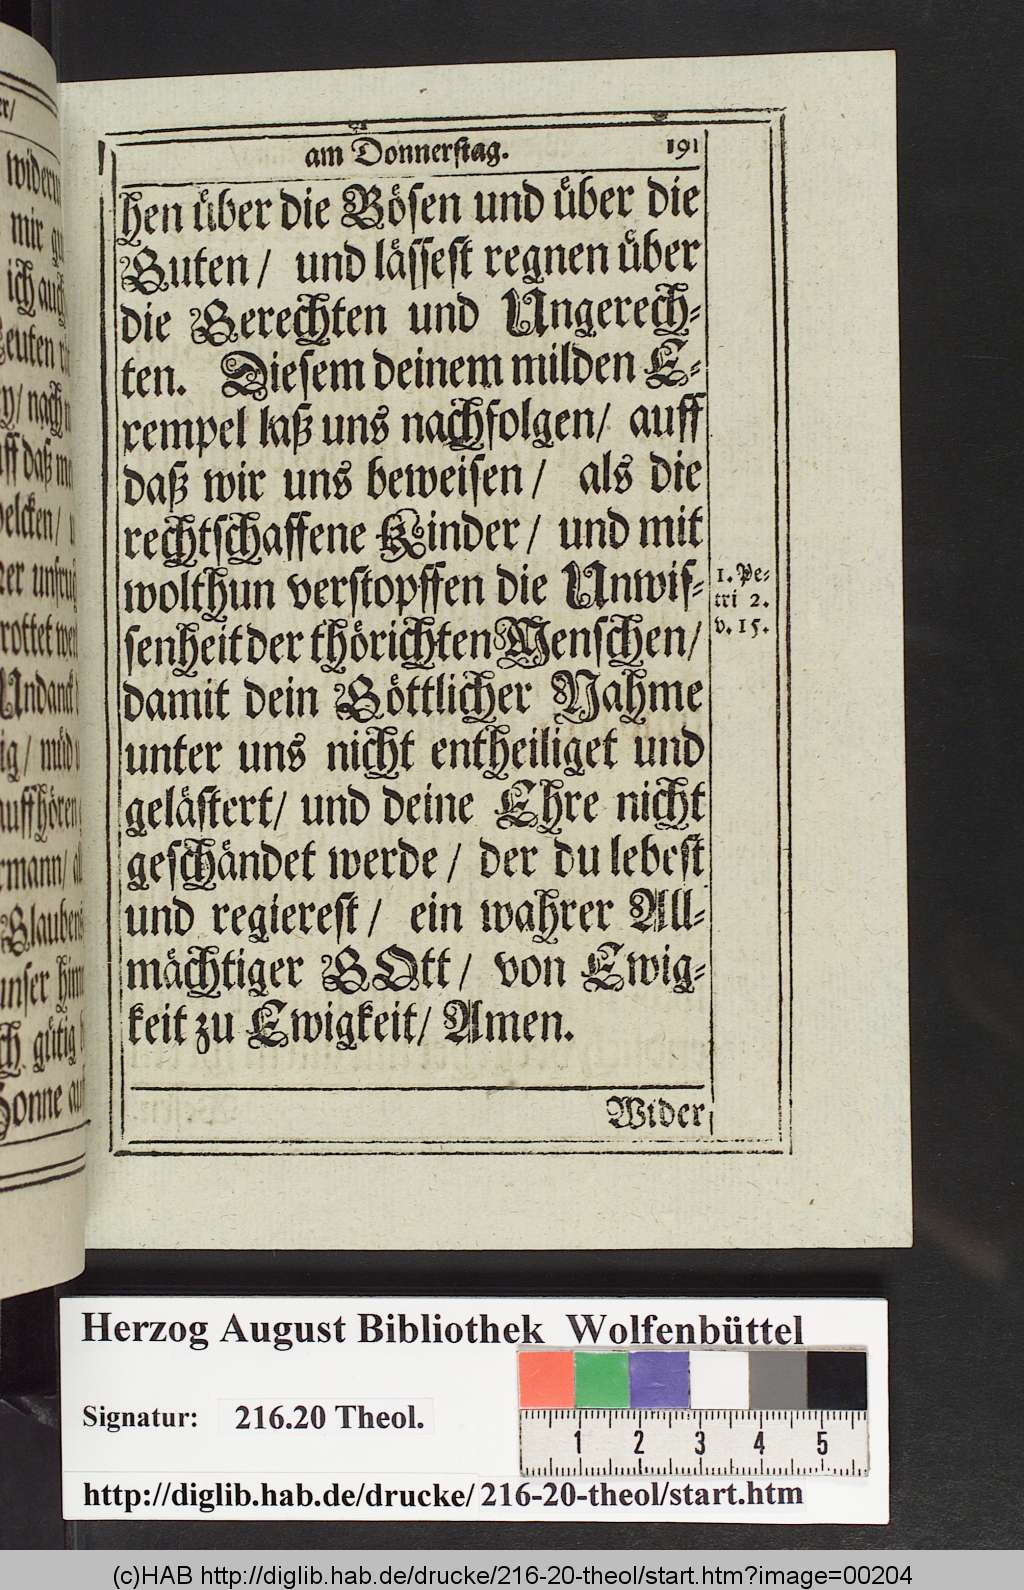 er/
mir
ich auch
nach
auff daß
elcken/
rottet
Undanck
ig/ müd
auffhören
ermann/
Glauben
unser
gütig
Sonne
am Donnerstag. 191
hen über die Bösen und über die
Guten/ und lässest regnen über
die Gerechten und Ungerech-
ten. Diesem deinem milden E-
xempel laß uns nachfolgen/ auff
daß wir uns beweisen/ als die
rechtschaffene Kinder/ und mit
wolthun verstopffen die Unwis-
senheit der thörichten Menschen/
damit dein Göttlicher Nahme
unter uns nicht entheiliget und
gelästert/ und deine Ehre nicht
geschändet werde/ der du lebest
und regierest/ ein wahrer All-
mächtiger GOtt/ von Ewig-
keit zu Ewigkeit/ Amen.
1. Pe-
tri 2.
v. 15.
Wider
Herzog August Bibliothek Wolfenbüttel
Signatur: 216.20 Theol.
1 2 3 4 5
http://diglib.hab.de/drucke/216-20-theol/start.htm
(c)HAB http://diglib.hab.de/drucke/216-20-theol/start.htm?image=00204